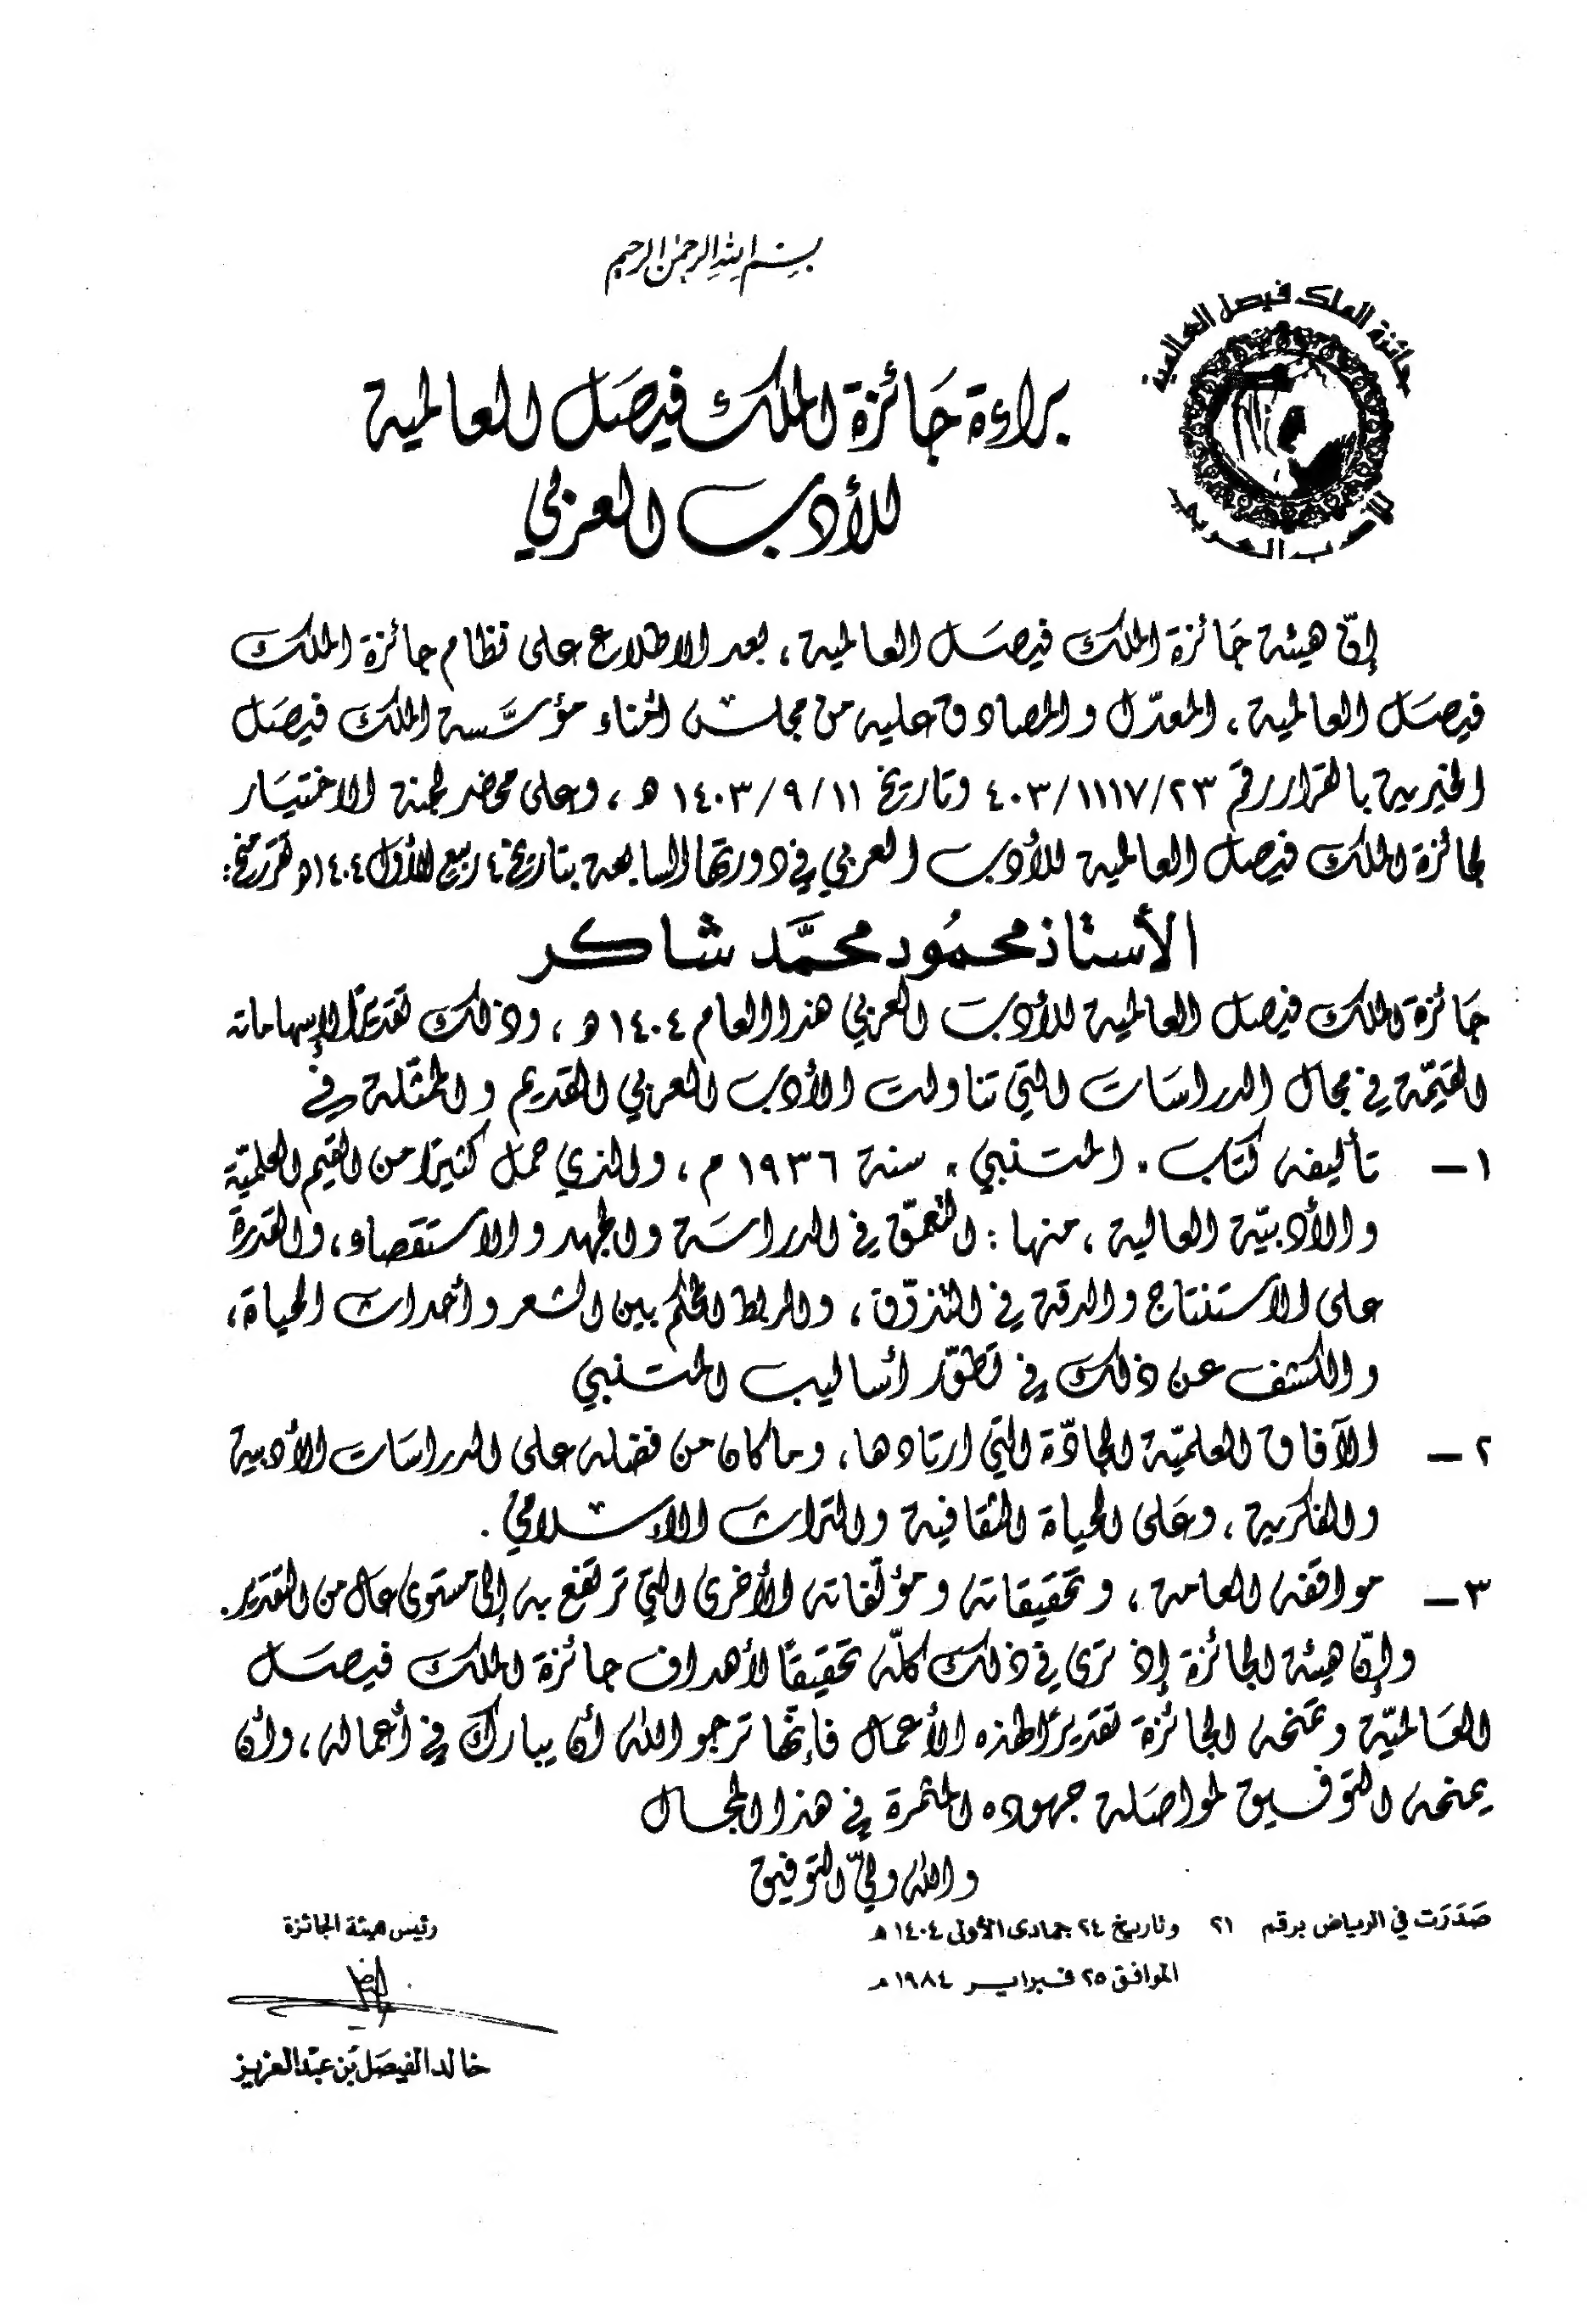 بسم الله الرحمن الرحيم
جائزة الملك فيصل العالمية
للأدب العربي
براءة جَائزة الملك فيصَل العالمية
للأدب العربي
إنّ هيئة جَائزة الملك فيصَل العالمية ، بعد الاطلاع على نظام جائزة الملك
فيصَل العالمية ، المعدّل والمصادق عليه من مجلس أمناء مؤسَّسة الملك فيصَل
الخيرية بالقرار رقم ٤٠٣/١١١٧/٢٣ وتاريخ ١٤٠٣/٩/١١ هـ ، وعلى محضر لجنة الاختيَار
لجائزة الملك فيصل العالمية للأدب العربي في دورتها السابعة بتاريخ ٤ ربيع الأول ١٤٠٤هـ تقرر منح :
الأستاذ محمُود محمَّد شاكر
جَائزة الملك فيصل العالمية للأدب العربي هذا العام ١٤٠٤ هـ ، وذلك تقديرًا لإسهاماته
القيّمة في مجال الدراسَات التي تناولت الأدب العربي القديم والممثّلة في
١ – تأليفه كتاب " المتنبي " سنة ١٩٣٦ م ، والذي حمل كثيرًا من القيم العلميّة
والأدبيّة العالية ، منها : التعمّق في الدراسَة والجهد والاستقصاء ، والقدرة
على الاستنتاج والدقة في التذوّق ، والربط المحكم بين الشعر وأحداث الحياة ،
والكشف عن ذلك في تطوّر أساليب المتنبي
٢ – الآفاق العلميّة الجادّة التي ارتادها ، وما كان من فضله على الدراسَات الأدبية
والفكرية ، وعَلى الحياة الثقافية والتراث الإسلامي .
٣ – مواقفه العامة ، وتحقيقاته ومؤلّفاته الأخرى التي ترتفع به إلى مستوى عال من التقدير .
وإنّ هيئة الجائزة إذ ترى في ذلك كلّه تحقيقًا لأهداف جائزة الملك فيصَل
العَالميّة وتمنحه الجائزة تقديرًا لهذه الأعمال فإنّها ترجو الله أن يبارك في أعماله ، وأن
يمنحه التوفيق لمواصَلة جهوده المثمرة في هذا المجال
والله وليّ التوفيق
صَدَرَت في الرياض برقم ٢١ وتاريخ ٢٤ جمادى الأولى ١٤٠٤هـ
الموافق ٢٥ فبراير ١٩٨٤م
رئيس هيئة الجائزة
خالد الفيصَل بن عبد العزيز